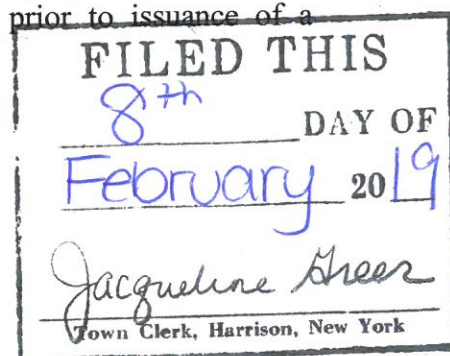 prior to issuance of a
FILED THIS
8th DAY OF
February 2019
Jacqueline Greer
Town Clerk, Harrison, New York